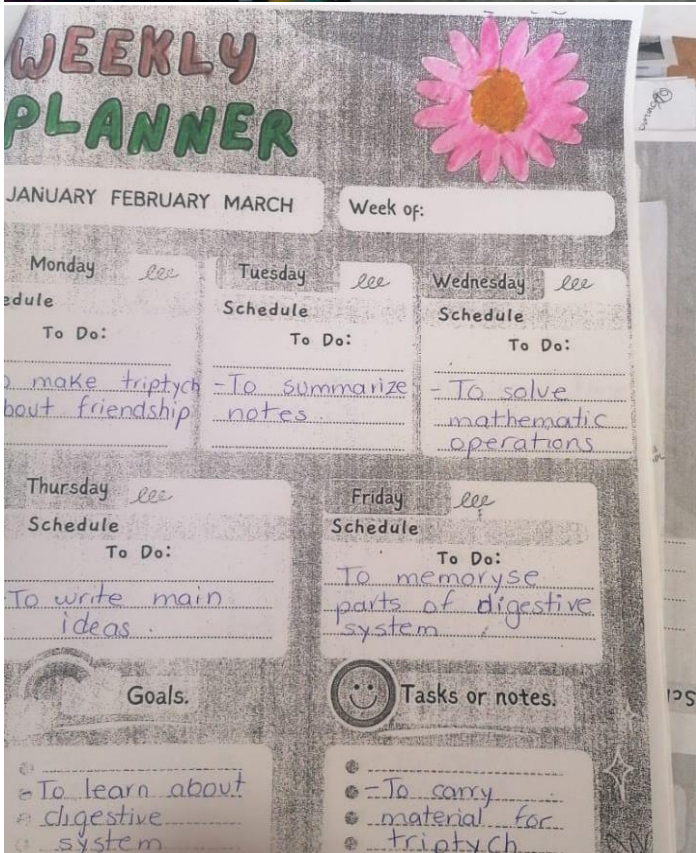 WEEKLY
PLANNER
JANUARY FEBRUARY MARCH
Week of:
Monday
edule
To Do:
make triptych
bout friendship
Tuesday
Schedule
To Do:
-To summarize
notes.
Wednesday
Schedule
To Do:
- To solve
mathematic
operations
Thursday
Schedule
To Do:
To write main
ideas.
Friday
Schedule
To Do:
To memoryse
parts of digestive
system
Goals.
-To learn about
digestive
system
Tasks or notes.
-To carry
material for
triptych